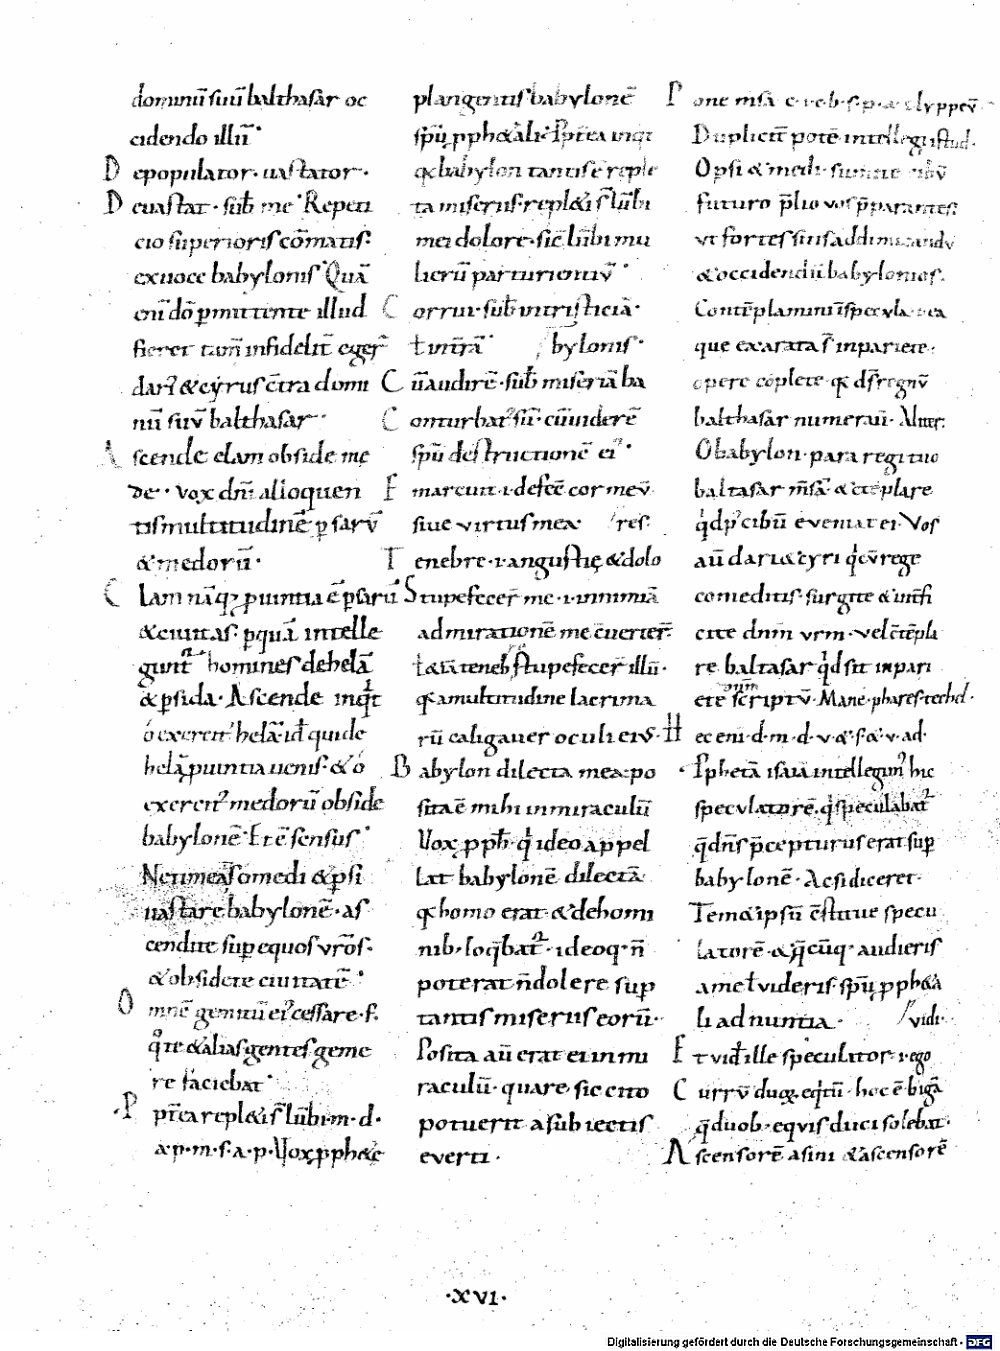 dominū suū balthasar oc
cidendo illū·
Depopulator· uastator·
Deuastat· sub me· Repeti
cio superioris cōmatis·
ex uoce babylonis· Quā
eni do pmittente illud
fieret tam infidelit
dari & cyrus ctra domi
nū suū balthasar·
Ascende elam obside me
de· vox dni alloquen
tis multitudinē psarū
& medorū·
Clam puintia ē psarū
& ciuitas· p quā intelle
gunt homines de helā
& psida· Ascende inqt
o exercit helā id quide
helā puintia uenis· & o
exercit medorū obside
babylonē· Et ē sensus·
Ne timeas o medi & psi
uastare babylonē· as
cendite sup equos vros·
& obsidete ciuitatē·
Omnē gemitū ei cessare· f·
qre & alias gentes geme
re faciebat·
Ptea repl& i s lūbi· m· d·
a· p· m· s· a· p· Vox pph&e
plangentis babylonē
spū pph&ali· Ptea inqt
q babylon tantis ē reple
ta miseriis· repl& i s lūbi
mei dolore· sic lūbi mu
lierū parturientiū·
Corrui· sub in tristicia·
bylonis·
Cū audirē· sub miseriā ba
Conturbat sū· cū uiderē
spū destructionē ei·
Emarcuit· i· defec cor meū
siue virtus mea· res·
Tenebre· i· angustię & dolo
Stupefecer me· i· in nimiā
admirationē me cuerter·
l& iā teneb stupefecer illū·
q a multitudine lacrima
rū caligauer oculi eius·
Babylon dilecta mea· po
sita ē mihi in miraculū
Vox pph· q ideo appel
lat babylonē dilectā·
q homo erat· & de homi
nib· loqbat· ideoq· n
poterat n dolere sup
tantis miseriis eorū·
Posita aū erat ei in mi
raculū· quare· sic cito
potuerit a subiectis
euerti·
Pone msā c· i· e· b· s· p·
Duplicit potē intellegi istud·
Opsi & medi·
futuro plio vos pparantes·
vt fortes sitis ad
& occidendū babylonios·
Contēplamini
que exarata s in pariete·
opere coplete q ds regnū
balthasar numerauit· Aliter·
O babylon· para regi tuo
baltasar msā· & ctēplare
qd p cibū eueniat ei· Vos
aū dari & cyri q cū rege
comeditis· surgite & intfi
cite dnm vrm· vel ctēpla
re baltasar qd sit in pari
ete scriptū· Mane· phares· techel·
Hec eni· d· m· d· v· & s· & v· ad·
Pphetā isaiā intellegim hic
speculatorē· q speculabat
qd dns pcepturus erat sup
babylonē· Ac si diceret·
Tem&ipsū cstitue specu
latorē· & qcūq· audieris
am& l videris· spū pph&a
li adnuntia· vidi·
Et vid ille speculator· i· ego
Currū duoz eqtū· hoc ē bigā
q duob· equis duci solebat·
Ascensorē asini & ascensorē
·XVI·
Digitalisierung gefördert durch die Deutsche Forschungsgemeinschaft - DFG